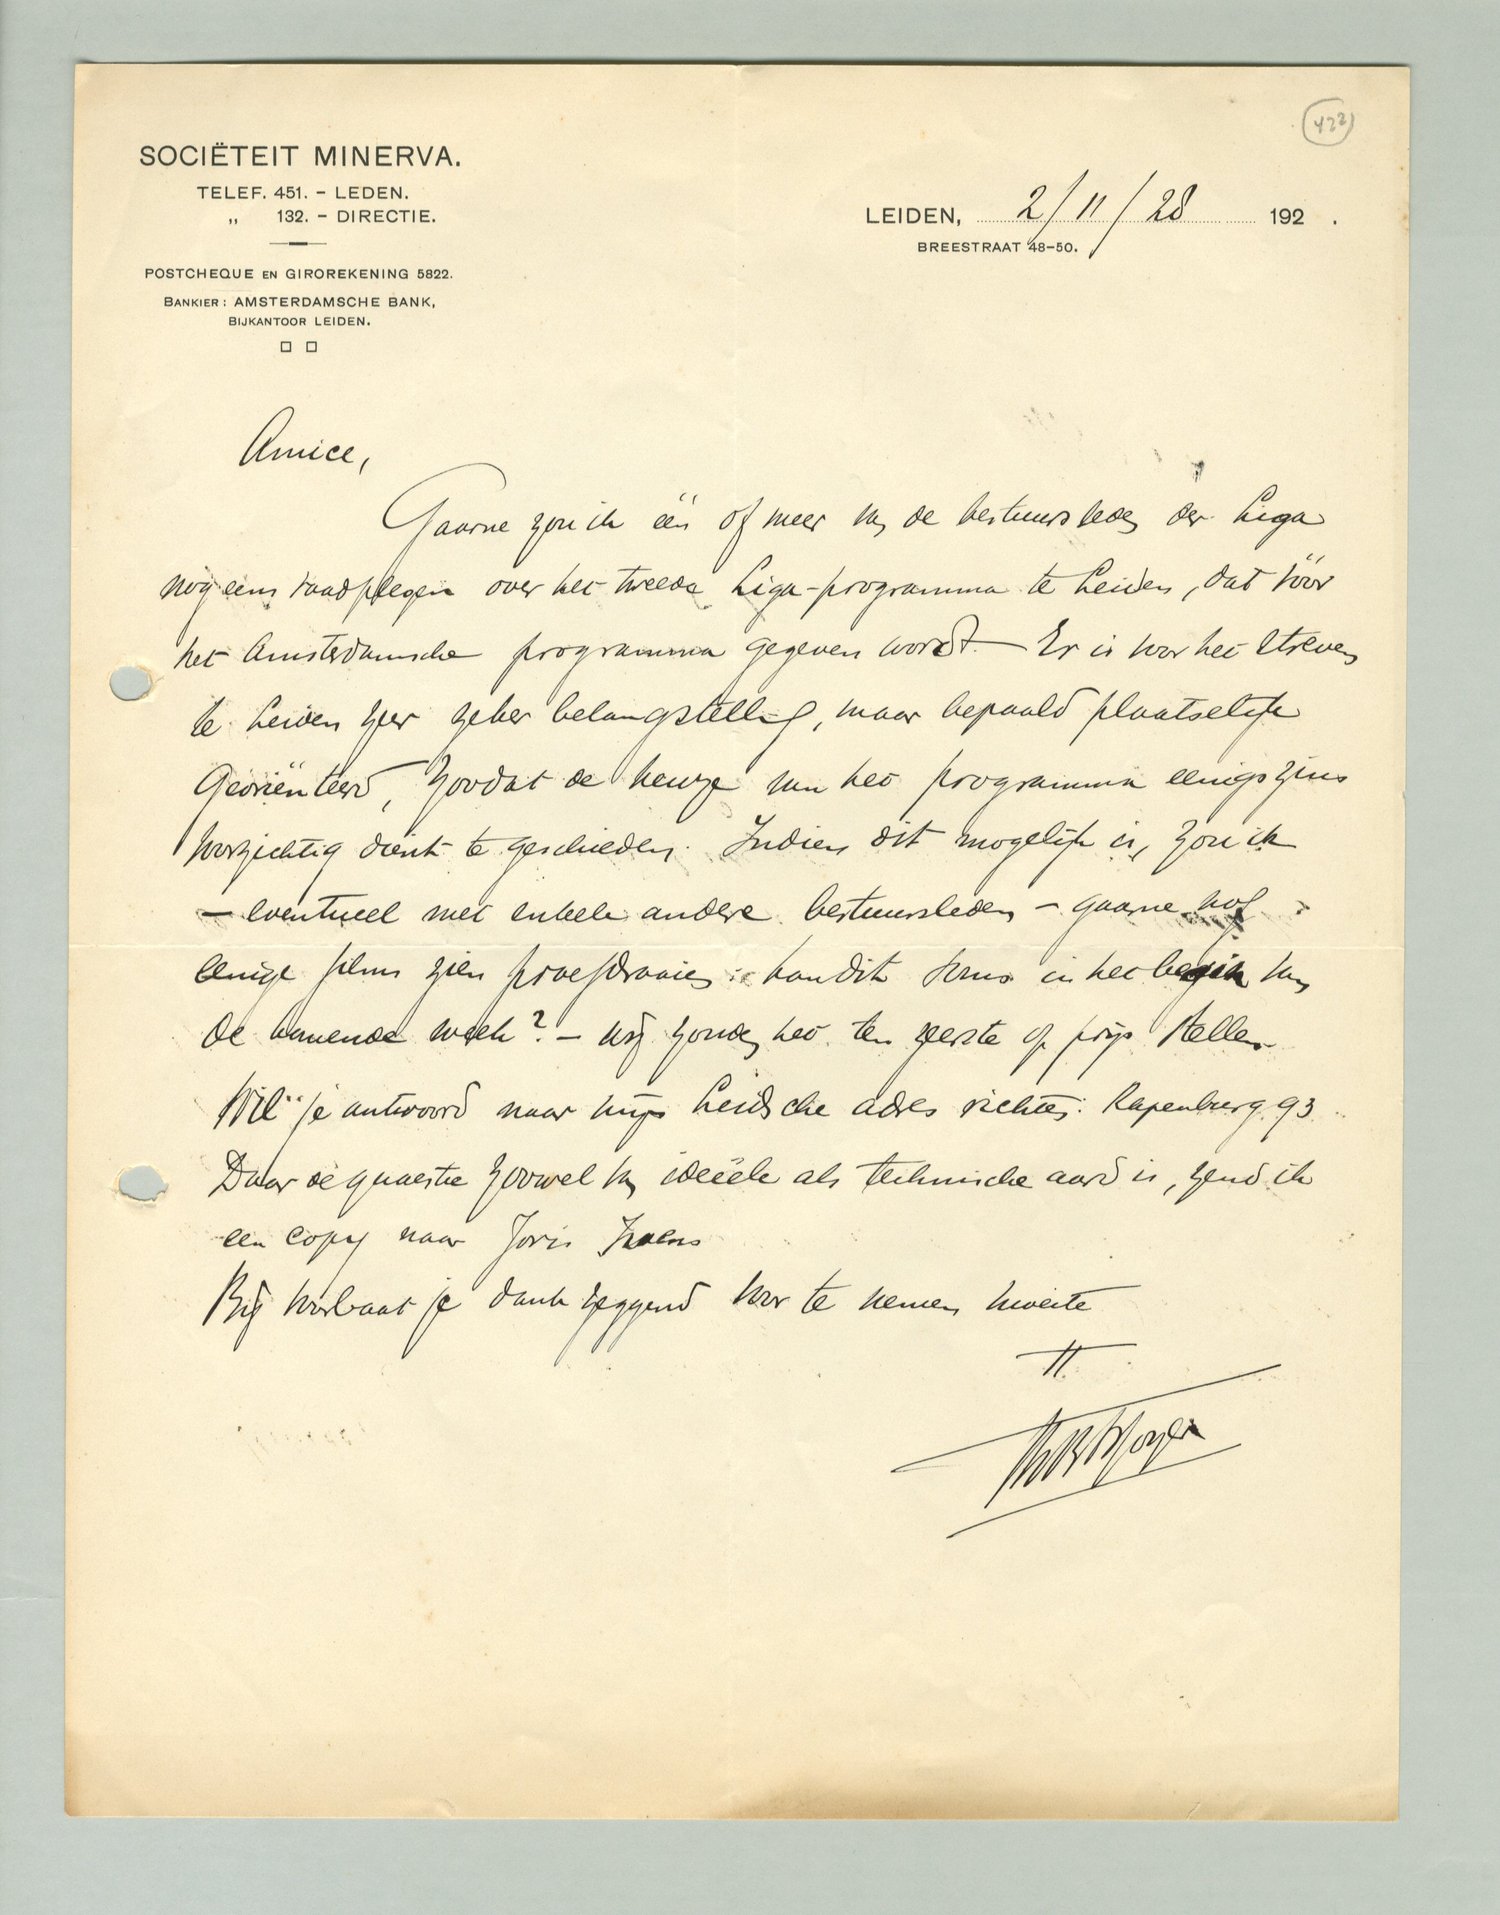 422
SOCIËTEIT MINERVA.
TELEF. 451. – LEDEN.
„ 132. – DIRECTIE.
LEIDEN, 2/11/28 192 .
BREESTRAAT 48-50.
POSTCHEQUE EN GIROREKENING 5822.
BANKIER: AMSTERDAMSCHE BANK,
BIJKANTOOR LEIDEN.
Amice,
Gaarne zou ik één of meer van de bestuursleden der Liga
nog eens raadplegen over het tweede Liga-programma te Leiden, dat vóór
het Amsterdamsche programma gegeven wordt. – Er is voor het streven
te Leiden zeer zeker belangstelling, maar bepaald plaatselijk
georiënteerd, zoodat de keuze van het programma eenigszins
voorzichtig dient te geschieden. Indien dit mogelijk is, zou ik
– eventueel met enkele andere bestuursleden – gaarne nog
eenige films zien proefdraaien: kan dit soms in het begin van
de komende week? – Wij zouden het ten zeerste op prijs stellen.
Wil je antwoord naar mijn Leidsche adres richten: Rapenburg 93
Daar de quaestie zoowel van ideëele als technische aard is, zend ik
een copy naar Joris Ivens
Bij voorbaat je dank zeggend voor te nemen moeite
tt.